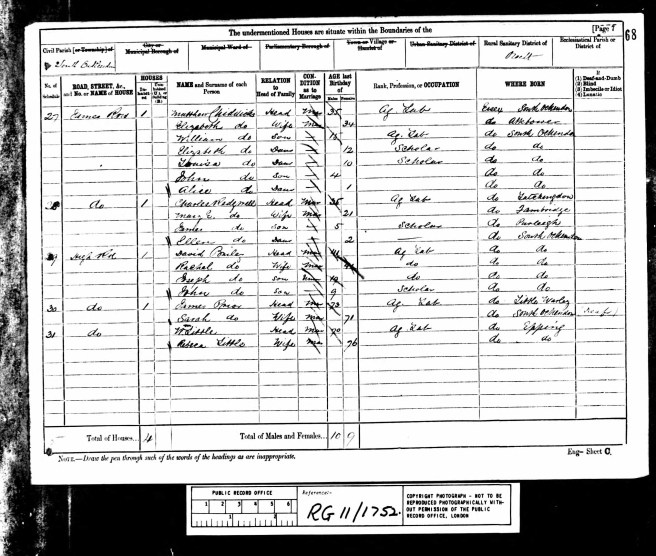 The undermentioned Houses are situate within the Boundaries of the
[Page 7
68
Civil Parish [or Township] of
City or Municipal Borough of
Municipal Ward of
Parliamentary Borough of
Town or Village or Hamlet of
Urban Sanitary District of
Rural Sanitary District of
Ecclesiastical Parish or District of
South Ockendon
Orsett
No. of Schedule
ROAD, STREET, &c., and No. or NAME of HOUSE
HOUSES
NAME and Surname of each Person
RELATION to Head of Family
CONDITION as to Marriage
AGE last Birthday of
Males
Females
Rank, Profession, or OCCUPATION
WHERE BORN
If
(1) Deaf-and-Dumb
(2) Blind
(3) Imbecile or Idiot
(4) Lunatic
27 Row 1 Matthew Head Mar 35 Ag Lab Essex South Ockendon
Elizabeth do Wife Mar 34 do
William do Son 15 Ag. Lab do South Ockendon
Elizabeth do Daur 12 Scholar do do
Louisa do Daur 10 Scholar do do
John do Son 4 do do
Alice do Daur 1 do do
28 do 1 Charles Head Mar Ag Lab do Latchingdon
Mary do Wife Mar 21 do Fambridge
James do Son 5 Scholar do Purleigh
Ellen do Daur 2 do South Ockendon
29 High Rd 1 David Head Mar Ag Lab do do
Rachel do Wife Mar do do do
Joseph do Son do do do
John do Son 9 Scholar do do
30 do 1 James Head Mar 73 Ag. Lab do Little Warley
Sarah do Wife Mar 71 do South Ockendon
31 do Wm Little Head Mar 70 Ag Lab do Epping
Rebeca Little Wife Mar 76 do do
Total of Houses... 4
Total of Males and Females... 10 9
NOTE.—Draw the pen through such of the words of the headings as are inappropriate.
Eng—Sheet C.
PUBLIC RECORD OFFICE
1 2 3 4 5 6
1 2
Reference:-
RG 11/1752
COPYRIGHT PHOTOGRAPH - NOT TO BE
REPRODUCED PHOTOGRAPHICALLY WITH-
OUT PERMISSION OF THE PUBLIC
RECORD OFFICE, LONDON